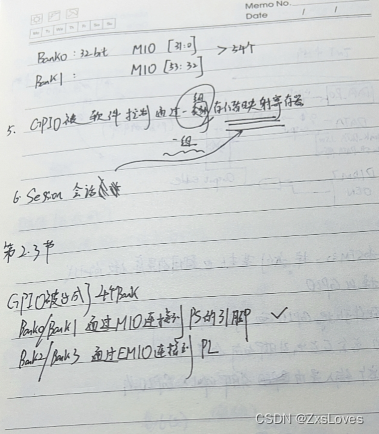 Memo No.
Date / /
Bank0: 32-bit MIO [31:0] > 54个
Bank1: MIO [53:32]
5. GPIO被 软件 控制 通过 一组 存储器映射寄存器
一组
6. Session 会话
第2.3节
GPIO被分成了4个Bank
Bank0/Bank1 通过MIO连接到PS的引脚 ✓
Bank2/Bank3 通过EMIO连接到PL
CSDN @ZxsLoves